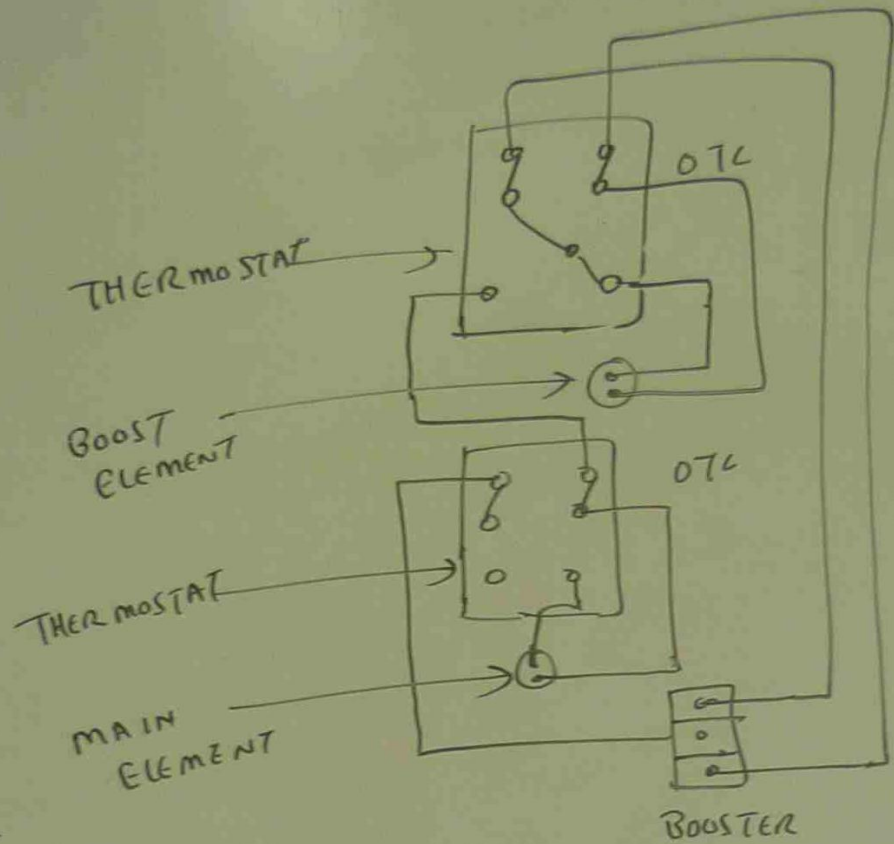 OTC
THERMOSTAT
BOOST
ELEMENT
OTC
THERMOSTAT
MAIN
ELEMENT
BOOSTER